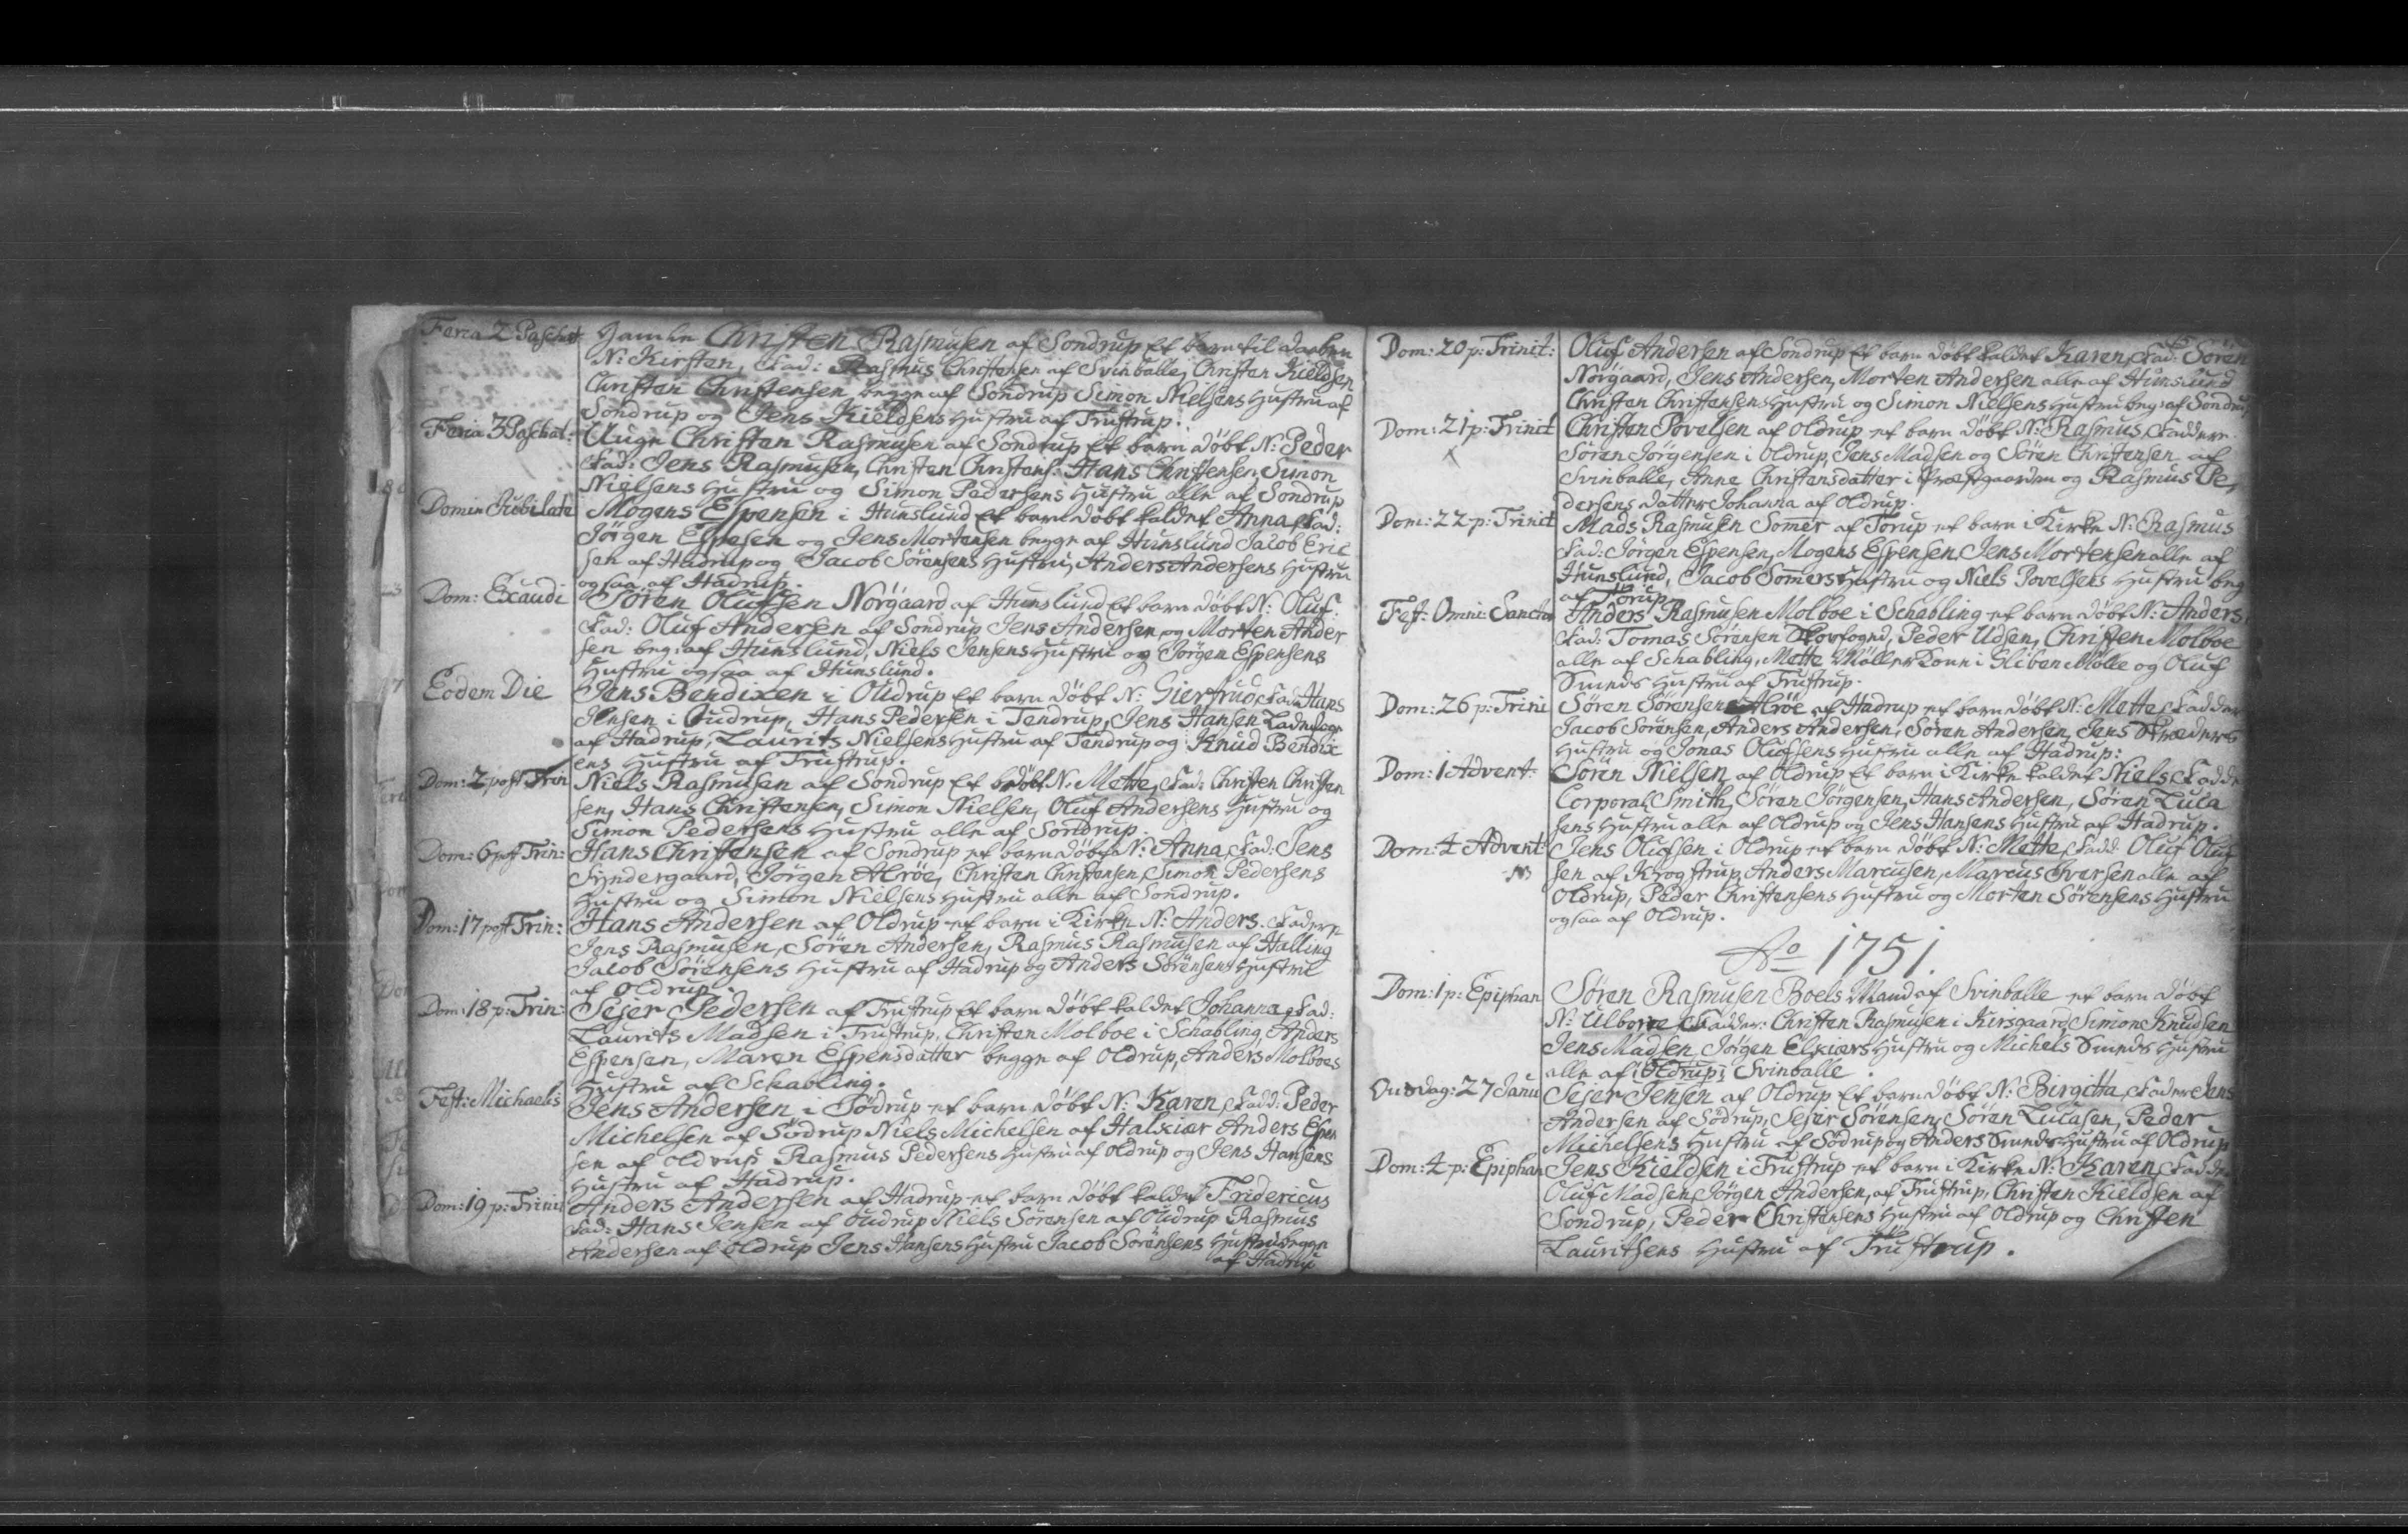 Feria 2 Paschat
Gamle Christen Rasmusen af Sondrup Et barn til daaben
N: Kirsten, Fad: Rasmus Christensen af Svinballe, Christen Kieldsen
Christen Christensen begge af Sondrup Simon Nielsens Hustru af
Sondrup og Jens Kieldsens Hustru af Trustrup.
Feria 3 Paschat:
Unge Christen Rasmusen af Sondrup Et barn døbt N: Peder
Fad: Jens Rasmusen, Christen Christens: Hans Christensen, Simon
Nielsens Hustru og Simon Pedersens Hustru alle af Sondrup
Domin Jubilate
Mogens Espensen i Hunslund Et barn døbt kaldet Anna, Fad:
Jørgen Espesen og Jens Mortensen begge af Hunslund Jacob Eric
sen af Hadrup og Jacob Sørensens Hustru, Anders Andersens Hustru
ogsaa af Hadrup.
Dom: Exaudi
Søren Olufsen Nørgaard af Hunslund Et barn døbt N: Oluf.
Fad: Oluf Andersen af Sondrup Jens Andersen og Morten Ander
sen beg: af Hunslund, Niels Jensens Hustru og Jørgen Espensens
Hustru ogsaa af Hunslund.
Eodem Die
Jens Bendixen i Oudrup Et barn døbt N: Giertrud, Fad: Hans
Jensen i Oudrup, Hans Pedersen i Tendrup, Jens Hansen Ladefoge
af Hadrup, Laurits Nielsens Hustru af Tendrup og Knud Bendix
ens Hustru af Trustrup.
Dom: 2 post Trin
Niels Rasmusen af Sondrup Et b døbt N: Mette, Fad: Christen Christen
sen, Hans Christensen, Simon Nielsen, Oluf Andersens Hustru og
Simon Pedersens Hustru alle af Sondrup.
Dom: 6 post Trin:
Hans Christensen af Sondrup et barn døbt N: Anna, Fad: Jens
Syndergaard, Jørgen Alrøe, Christen Christensen, Simon Pedersens
Hustru og Simon Nielsens Hustru alle af Sondrup.
Dom: 17 post Trin:
Hans Andersen af Oldrup et barn i Kirke N: Anders. Fadere
Jens Rasmusen, Søren Andersen, Rasmus Rasmusen af Halling
Jacob Sørensens Hustru af Hadrup og Anders Sørensens Hustru
af Oldrup.
Dom: 18 p: Trin:
Sejer Pedersen af Trustrup Et barn døbt kaldet Johanna, Fad:
Laurits Madsen i Trustrup, Christen Molboe i Schabling, Anders
Espensen, Maren Espensdatter begge af Oldrup, Anders Molboes
Hustru af Schabling.
Fest: Michaelis
Jens Andersen i Södrup et barn døbt N: Karen, Fadd: Peder
Michelsen af Södrup Niels Michelsen af Halkiær Anders Espen
sen af Oldrup Rasmus Pedersens Hustru af Oldrup og Jens Hansens
Hustru af Hadrup.
Dom: 19 p: Trinit
Anders Andersen af Hadrup et barn døbt kaldet Fridericus
Fad: Hans Jensen af Oudrup Niels Sørensen af Oudrup Rasmus
Andersen af Oldrup Jens Hansens Hustru Jacob Sørensens Hustru begge
af Hadrup
Dom: 20 p: Trinit:
Oluf Andersen af Sondrup Et barn døbt kaldet Karen, Fad: Søren
Nørgaard, Jens Andersen, Morten Andersen alle af Hunslund
Christen Christensens Hustru og Simon Nielsens Hustru beg: af Sondrup
Dom: 21 p: Trinit
Christen Povelsen af Oldrup et barn døbt N: Rasmus, Faddere.
Søren Jørgensen i Oldrup, Jens Madsen og Søren Christensen af
Svinballe, Anne Christensdatter i Præstgaarden og Rasmus Pe,
dersens datter Johanna af Oldrup.
Dom: 22 p: Trinit
Mads Rasmusen Somer af Torup et barn i Kirke N: Rasmus
Fad: Jørgen Espensen, Mogens Espensen, Jens Mortensen alle af
Hunslund, Jacob Somers Hustru og Niels Povelsens Hustru beg
af Torup.
Fest: Omni: Sanctor
Anders Rasmusen Molboe i Schabling et barn døbt N: Anders,
Fad: Tomas Sørensen Skovfogud, Peder Udsen, Christen Molboe
alle af Schabling, Mette Møller Kone i Gliben Mølle og Oluf
Smeds Hustru af Trustrup.
Dom: 26 p: Trini
Søren Sørensen Alrøe af Hadrup et barn døbt N: Mette, Fadder
Jacob Sørensen, Anders Andersen, Søren Andersen, Jens Skræders
Hustru og Jonas Olufsens Hustru alle af Hadrup:
Dom: 1 Advent:
Søren Nielsen af Oldrup Et barn i Kirke kaldet Niels, Fadde
Corporal Smith, Søren Jørgensen, Hans Andersen, Søren Luca
sens Hustru alle af Oldrup og Jens Hansens Hustru af Hadrup.
Dom: 4 Advent
Jens Olufsen i Oldrup et barn døbt N: Mette, Fadd: Oluf Oluf
sen af Krogstrup, Anders Marcusen, Marcus Iversen alle af
Oldrup, Peder Christensens Hustru og Morten Sørensens Hustru
ogsaa af Oldrup.
Ao 1751.
Dom: 1 p: Epiphan
Søren Rasmusen Boels Mand af Svinballe et barn døbt
N: Ulborre, Fadder: Christen Rasmusen i Kirsgaard, Simon Knudsen
Jens Madsen, Jørgen Elkiærs Hustru og Michels Smeds Hustru
alle af Oldrup Svinballe.
Onsdag: 27 Janu
Sejer Jensen af Oldrup Et barn døbt N: Birgitta, Fader Jens
Andersen af Södrup, Sejer Sørensen, Søren Lucasen, Peder
Michelsens Hustru af Södrup og Anders Smeds Hustru af Oldrup
Dom: 4 p: Epiphan
Jens Kieldsen i Trustrup et barn i Kirke N: Karen, Fadde
Oluf Madsen, Jørgen Andersen, af Trustrup, Christen Kieldsen af
Sondrup, Peder Christensens Hustru af Oldrup og Christen
Lauritsens Hustru af Trustrup.